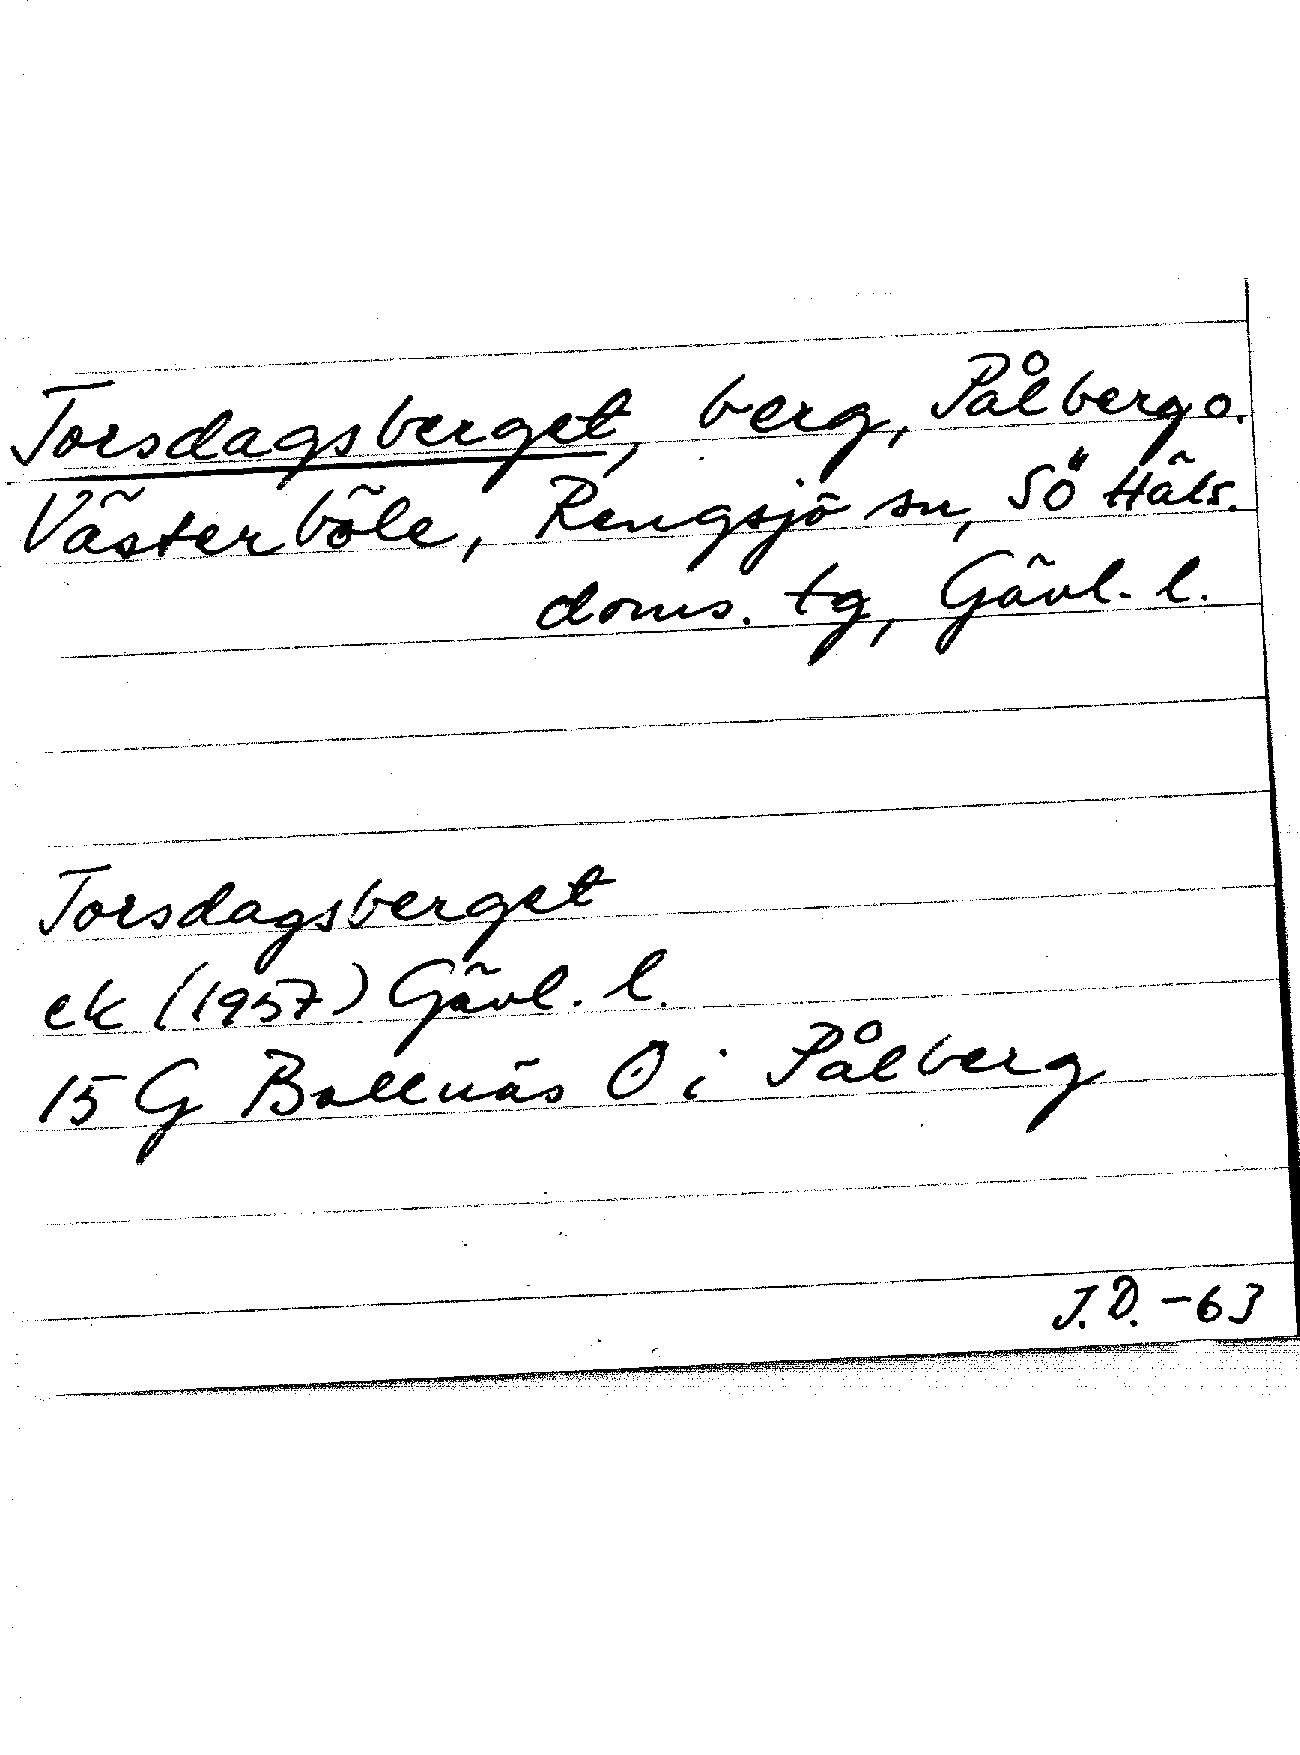 Torsdagsberget, berg, Pålberg o.
Västerböle, Rengsjö sn, Sö Häls.
doms. tg, Gävl. l.
Torsdagsberget
ek (1957) Gävl. l.
15 G Bollnäs Ö i Pålberg
J.D. -63